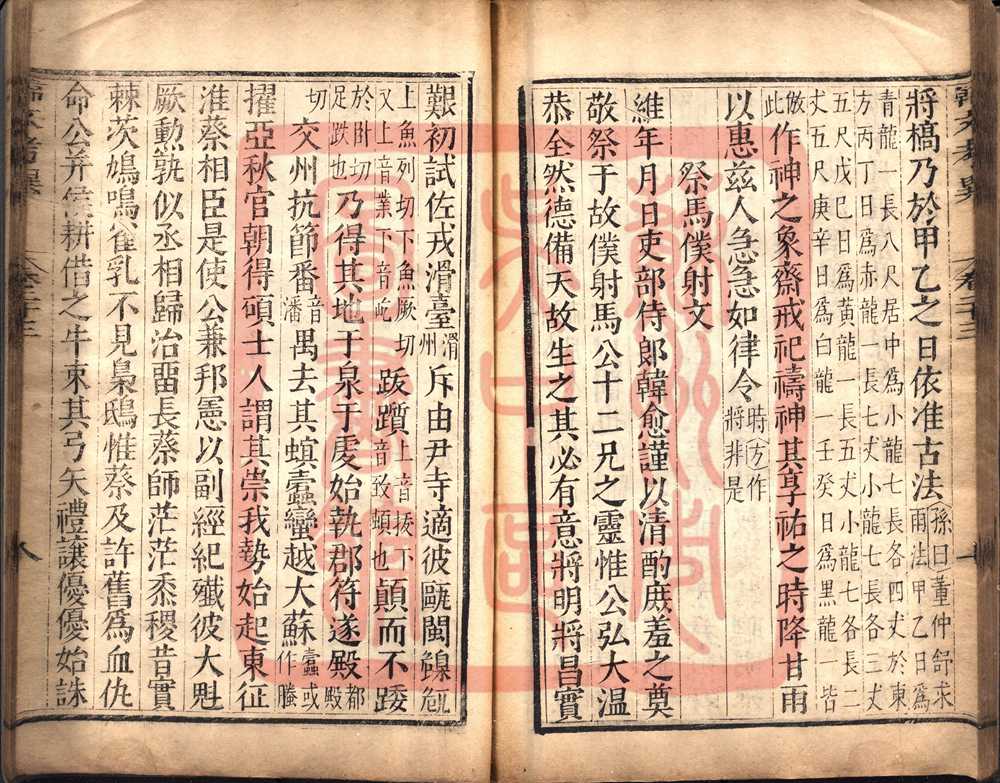 將槁乃於甲乙之日依准古法孫曰董仲舒求雨法甲乙日爲
青龍一長八尺居中爲小龍七長各四丈於東
方丙丁日爲赤龍一長七丈小龍七長各三丈
五尺戊巳日爲黃龍一長五丈小龍七各長二
丈五尺庚辛日爲白龍一壬癸日爲黑龍一皆
倣此作神之象齋戒祀禱神其享祐之時降甘雨
以惠茲人急急如律令時方作將非是
祭馬僕射文
維年月日吏部侍郎韓愈謹以清酌庶羞之奠
敬祭于故僕射馬公十二兄之靈惟公弘大溫
恭全然德備天故生之其必有意將明將昌實
艱初試佐戎滑臺滑州斥由尹寺適彼甌閩鎳卼
上魚列切下魚厥切
又上音業下音屹跋躓上音拔下音致頓也顛而不踒
於卧切足跌也乃得其地于泉于虔始執郡符遂殿都殿
切交州抗節番音潘禺去其螟蠹蠻越大蘇蠹或作螣
擢亞秋官朝得碩士人謂其崇我勢始起東征
淮蔡相臣是使公兼邦憲以副經紀殲彼大魁
厥勳孰似丞相歸治留長蔡師茫茫黍稷昔實
棘茨鳩鳴雀乳不見梟鴟惟蔡及許舊爲血仇
命公并侯耕借之牛束其弓矢禮讓優優始誅